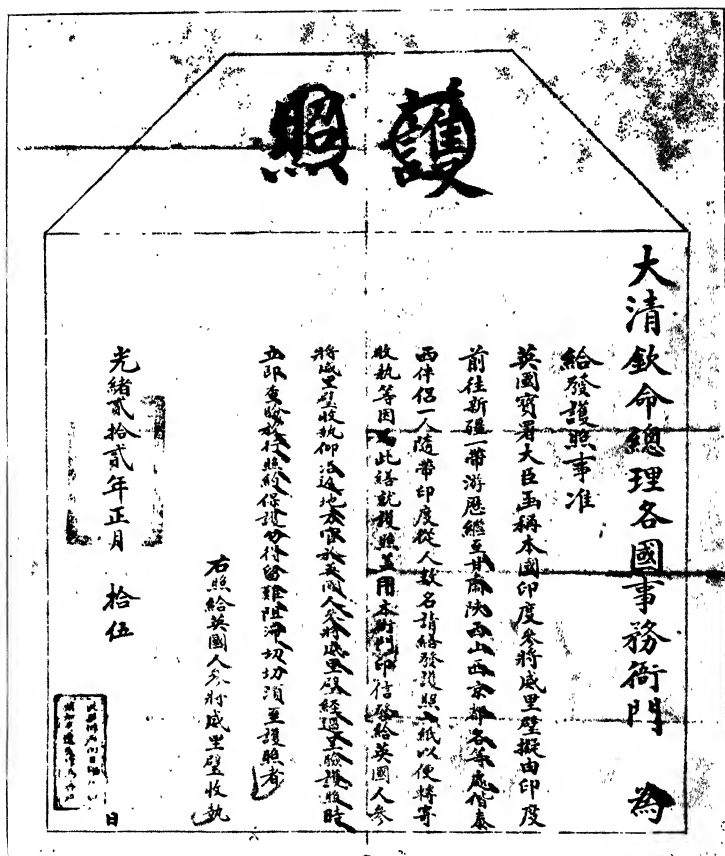 護照
大清欽命總理各國事務衙門　為
給發護照事准
英國寶署大臣函稱本國印度參將威里璧擬由印度
前往新疆一帶游歷繼至甘肅陝西山西京都各等處偕泰
西伴侶一人隨帶印度從人數名請繕發護照一紙以便轉寄
收執等因為此繕就護照蓋用本衙門印信發給英國人參
將威里璧收執仰沿途地方官於英國人參將威里璧經過呈驗護照時
立即查驗放行照約保護勿得留難阻滯切切須至護照者
右照給英國人參將威里璧收執
光緒貳拾貳年正月　拾伍
日